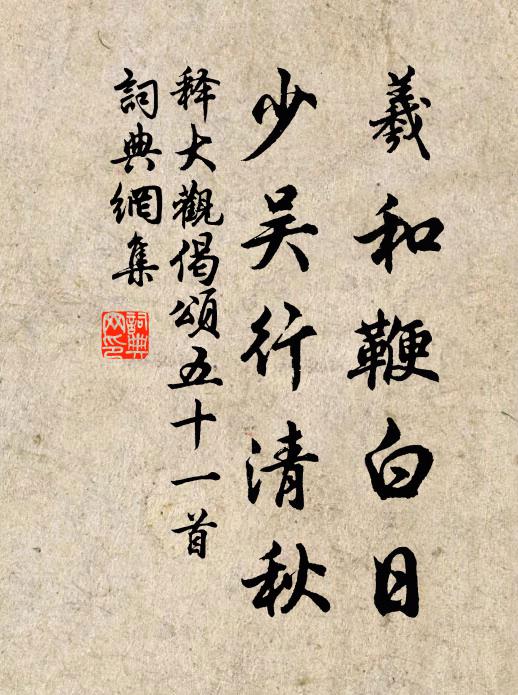 羲和鞭白日
少吴行清秋
释大觀偈頌五十一首
詞典網集
詞典網印